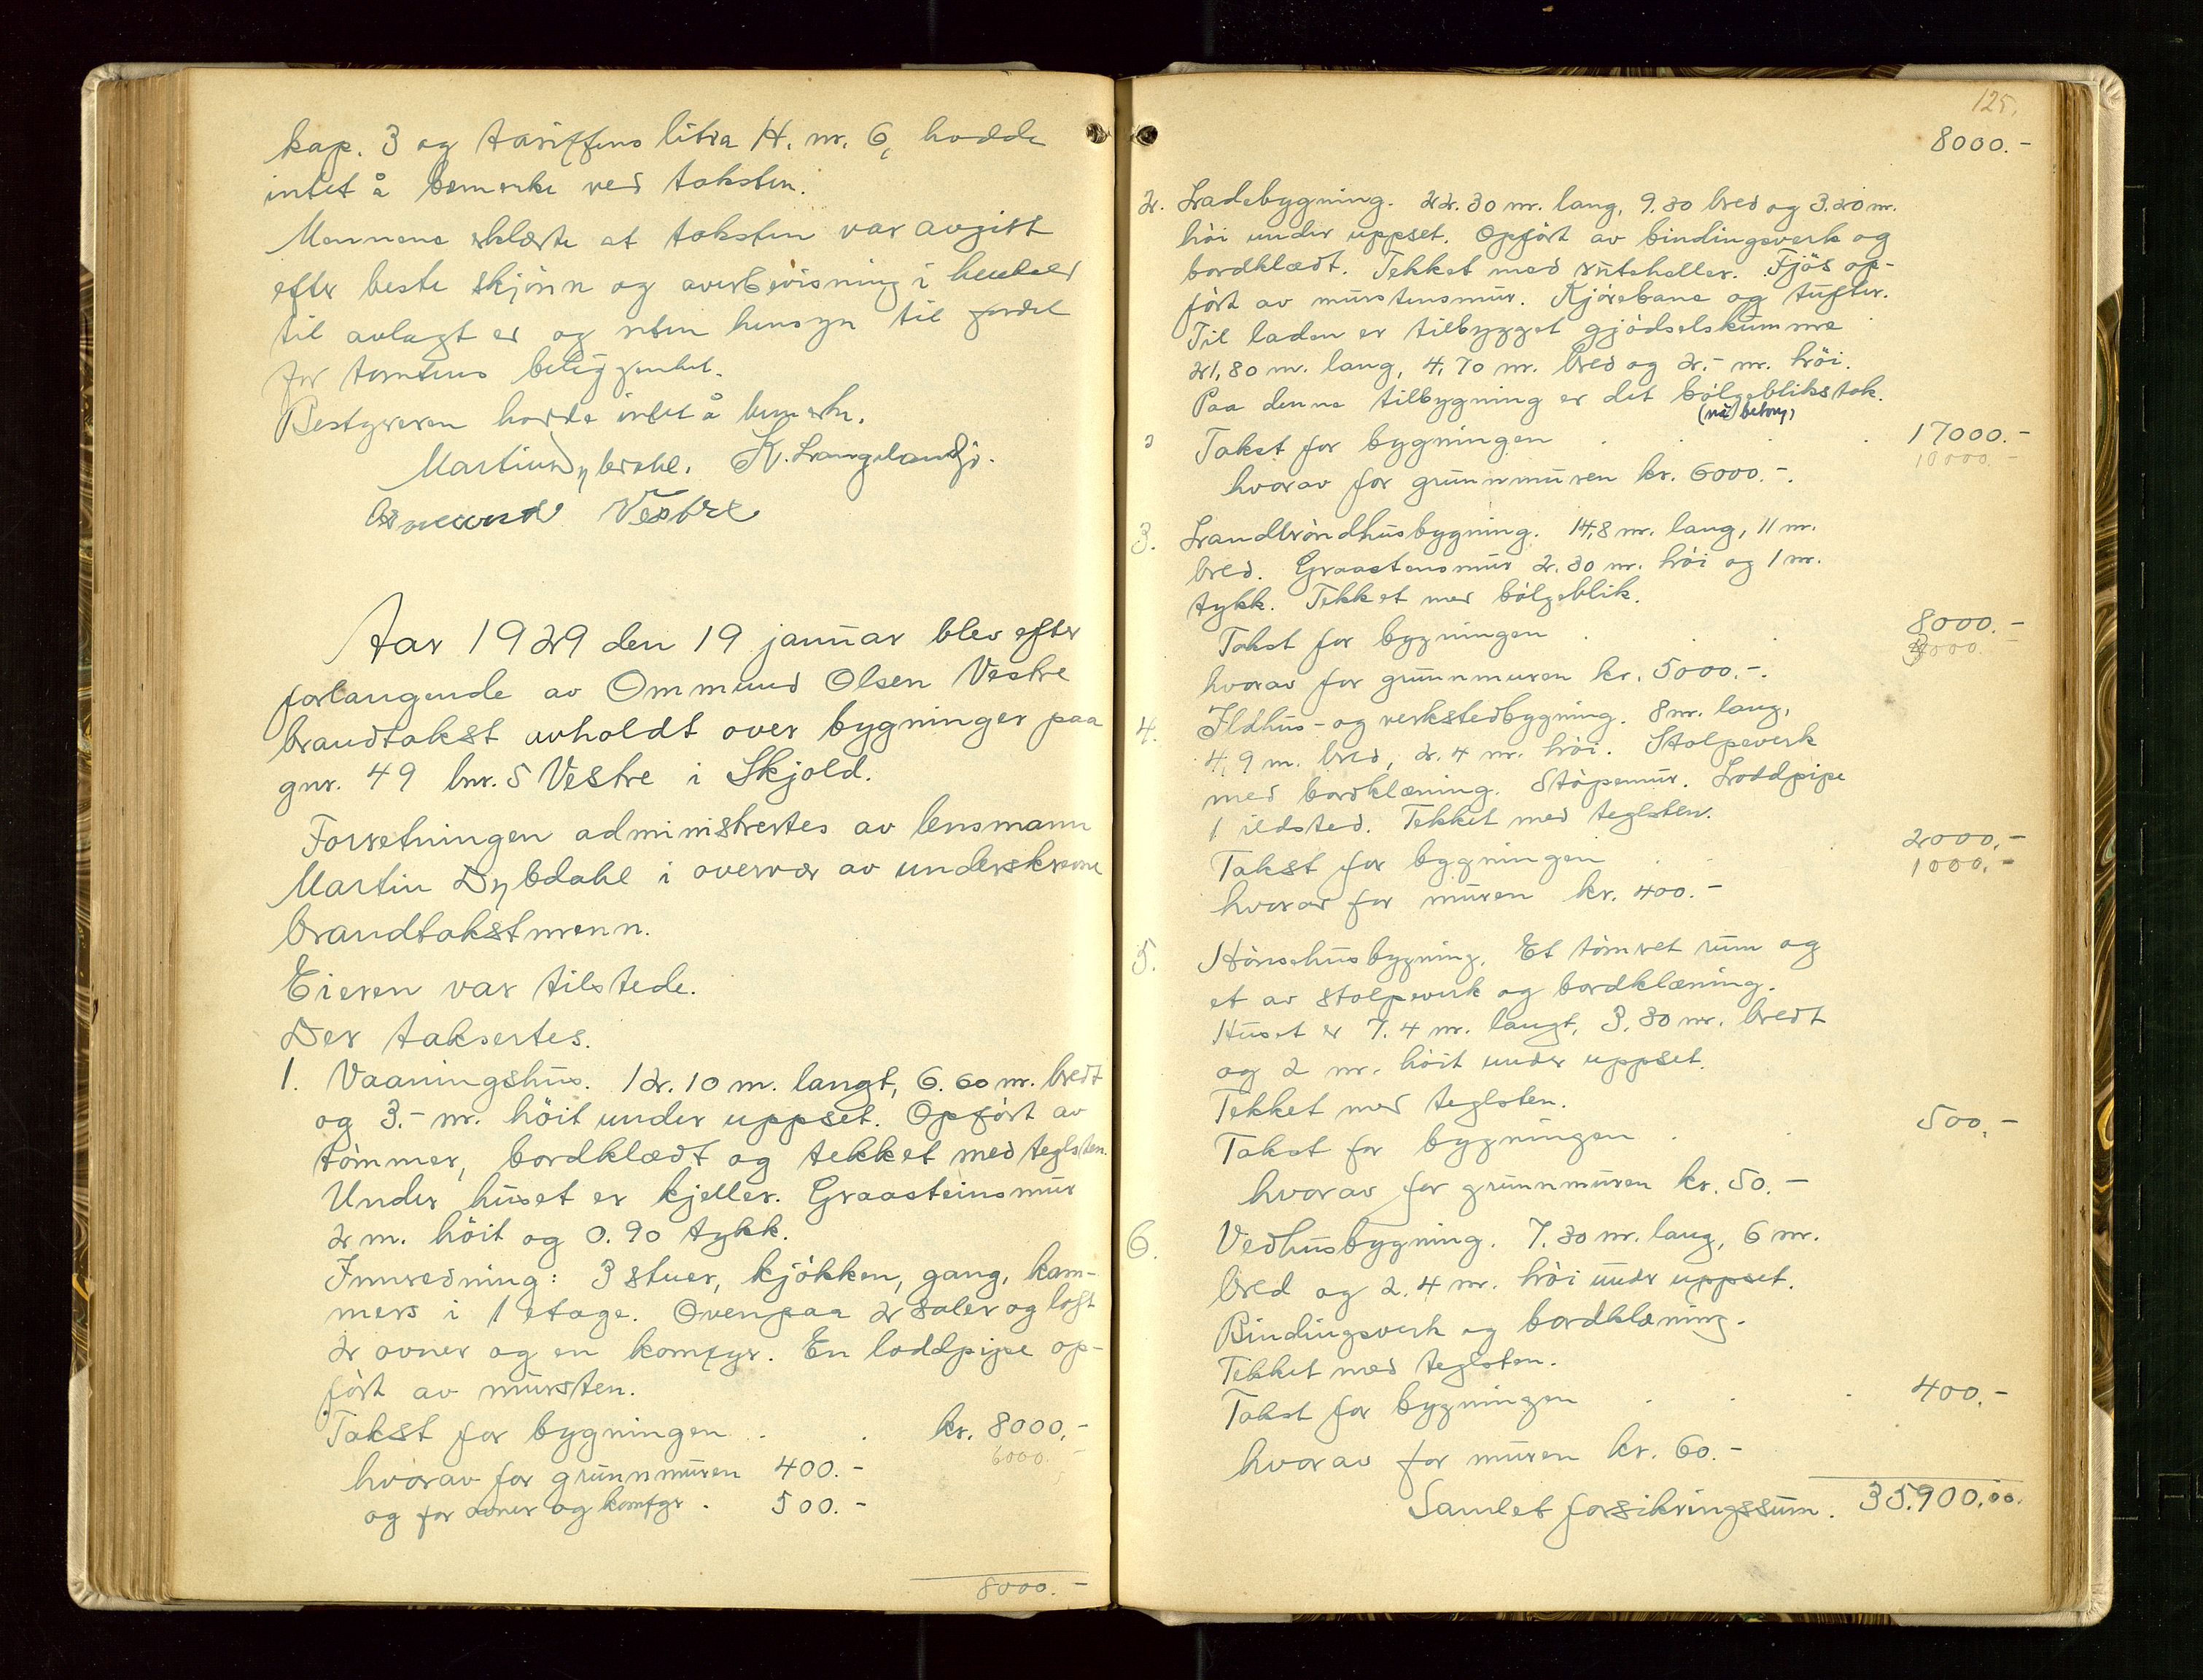 kap. 3 og tariffens litra H. nr. 6, hadde
intet å bemerke ved taksten.
Mennene erklærte at taksten var avgitt
efter beste skjönn og overbevisning i henhold
til avlagt ed og uten hensyn til fordel
for tomtens beliggenhet.
Bestyreren hadde intet å bemerke.
Martin Dybdahl. K. Langeland
Vestre
Aar 1929 den 19 januar blev efter
forlangende av Ommund Olsen Vestre
brandtakst avholdt over bygninger paa
gnr. 49 bnr. 5 Vestre i Skjold.
Forretningen administrertes av lensmann
Martin Dybdahl i overvær av underskrevne
brandtakstmenn.
Eieren var tilstede.
Der taksertes.
1. Vaaningshus. 12.10 m. langt, 6.60 m. bredt
og 3.- m. höit under uppset. Opfört av
tömmer, bordklædt og tekket med teglsten.
Under huset er kjeller. Graasteinsmur
2 m. höit og 0.90 tykk.
Innredning: 3 stuer, kjökken, gang, kam-
mers i 1 etage. Ovenpaa 2 saler og loft
2 ovner og en komfyr. En loddpipe op-
fört av mursten.
Takst for bygningen . . kr. 8000.-
6000.-
hvorav for grunnmuren 400.-
og for ovner og komfyr . 500.-
8000.-
125.
8000.-
2. Ladebygning. 22.30 m. lang, 9.30 bred og 3.20 m.
höi under uppset. Opfört av bindingsverk og
bordklædt. Tekket med ruteheller. Fjös op-
fört av murstensmur. Kjörebane og tufter.
Til laden er tilbygget gjödselskumme
21,80 m. lang, 4,70 m. bred og 2.- m. höi.
Paa denne tilbygning er det bölgebliktak.
(nu betong)
Takst for bygningen . . . . 17000.-
10000.-
hvorav for grunnmuren kr. 6000.-.
3. Landbröndhusbygning. 14,8 m. lang, 11 m.
bred. Graastensmur 2.30 m. höi og 1 m.
tykk. Tekket med bölgeblik.
Takst for bygningen . . . 8000.-
3000.-
hvorav for grunnmuren kr. 5000.-.
4. Ildhus- og verkstedbygning. 8 m. lang,
4,9 m. bred, 2.4 m. höi. Stolpeverk
med bordklæning. Stöpemur. Loddpipe
1 ildsted. Tekket med teglsten.
Takst for bygningen . . . 2000.-
1000.-
hvorav for muren kr. 400.-
5. Hönsehusbygning. Et tömret rum og
et av stolpeverk og bordklæning.
Huset er 7.4 m. langt, 3.30 m. bredt
og 2 m. höit under uppset.
Tekket med teglsten.
Takst for bygningen . . 500.-
hvorav for grunnmuren kr. 50.-
6. Vedhusbygning. 7.30 m. lang, 6 m.
bred og 2.4 m. höi under uppset.
Bindingsverk og bordklæning.
Tekket med teglsten.
Takst for bygningen . . . 400.-
hvorav for muren kr. 60.-
Samlet forsikringssum. 35.900.00.